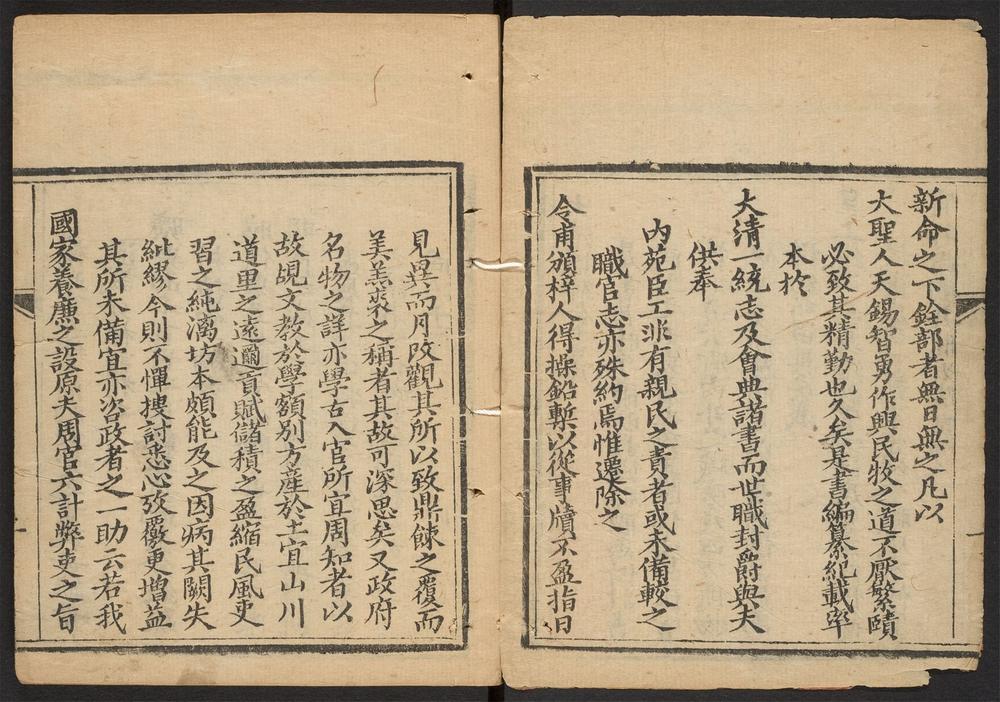 新命之下銓部者無日無之凡以
大聖人天錫智勇作興民牧之道不厭繁賾
必致其精勤也久矣是書編纂紀載率
本於
大清一統志及會典諸書而世職封爵與夫
供奉
內苑臣工非有親民之責者或未備較之
職官志亦殊約焉惟遷除之
令甫頒梓人得操鉛槧以從事牘不盈指日
見異而月改觀其所以致鼎餗之覆而
美羔裘之稱者其故可深思矣又政府
名物之詳亦學古入官所宜周知者以
故覘文教於學額別方產於土宜山川
道里之遠邇貢賦儲積之盈縮民風吏
習之純漓坊本頗能及之因病其闕失
紕繆今則不憚搜討悉心攷覈更增益
其所未備宜亦咨政者之一助云若我
國家養廉之設原夫周官六計弊吏之旨